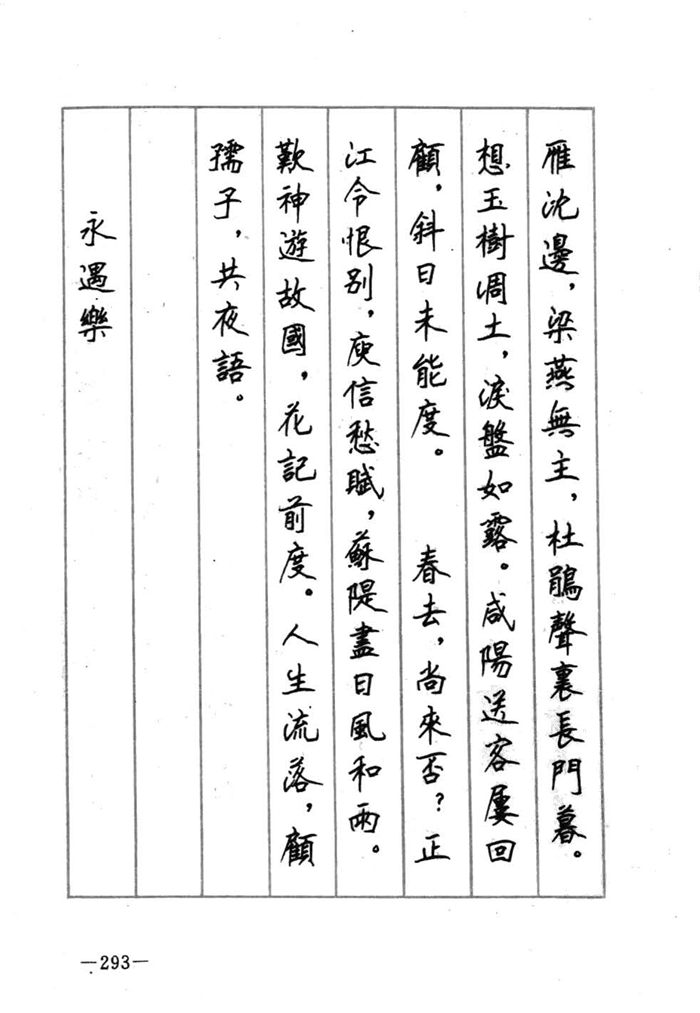 雁沈邊，梁燕無主，杜鵑聲裏長門暮。
想玉樹凋土，淚盤如露。咸陽送客屢回
顧，斜日未能度。　　春去，尚來否？正
江令恨别，庾信愁賦，蘇隄盡日風和雨。
歎神遊故國，花記前度。人生流落，顧
孺子，共夜語。
永遇樂
—293—